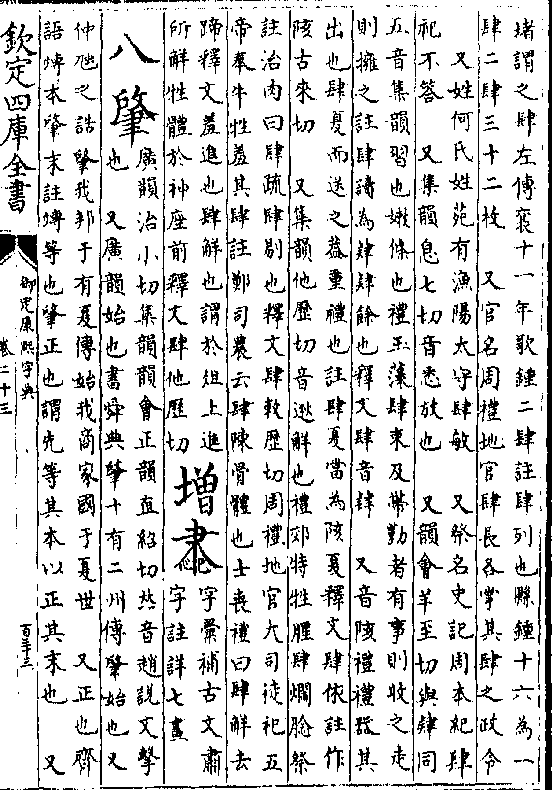 堵謂之肆左傳襄十一年歌鍾二肆註肆列也縣鍾十六為一
肆二肆三十二枚　又官名周禮地官肆長各掌其肆之政令
　又姓何氏姓苑有漁陽太守肆敏　又祭名史記周本紀肆
祀不答　又集韻息七切音悉放也　又韻會羊至切與肄同
五音集韻習也嫩條也禮玉藻肆束及帶勤者有事則收之走
則擁之註肆讀為肄肄餘也釋文肆音肄　又音陔禮禮器其
出也肆夏而送之蓋重禮也註肆夏當為陔夏釋文肆依註作
陔古來切　又集韻他歷切音逖解也禮郊特牲腥肆爓腍祭
註治肉曰肆疏肆剔也釋文肆敕歷切周禮地官大司徒祀五
帝奉牛牲羞其肆註鄭司農云肆陳骨體也士喪禮曰肆解去
蹄釋文羞進也肆解也謂於俎上進
所解牲體於神座前釋文肆他歷切
增
字彙補古文肅
字註詳七畫
八
肇
廣韻治小切集韻韻會正韻直紹切𠀤音趙說文擊
也　又廣韻始也書舜典肇十有二州傳肇始也又
仲虺之誥肇我邦于有夏傳始我商家國于夏世　又正也齊
語竱本肇末註竱等也肇正也謂先等其本以正其末也　又
欽定四庫全書
御定康熙字典
卷二十三